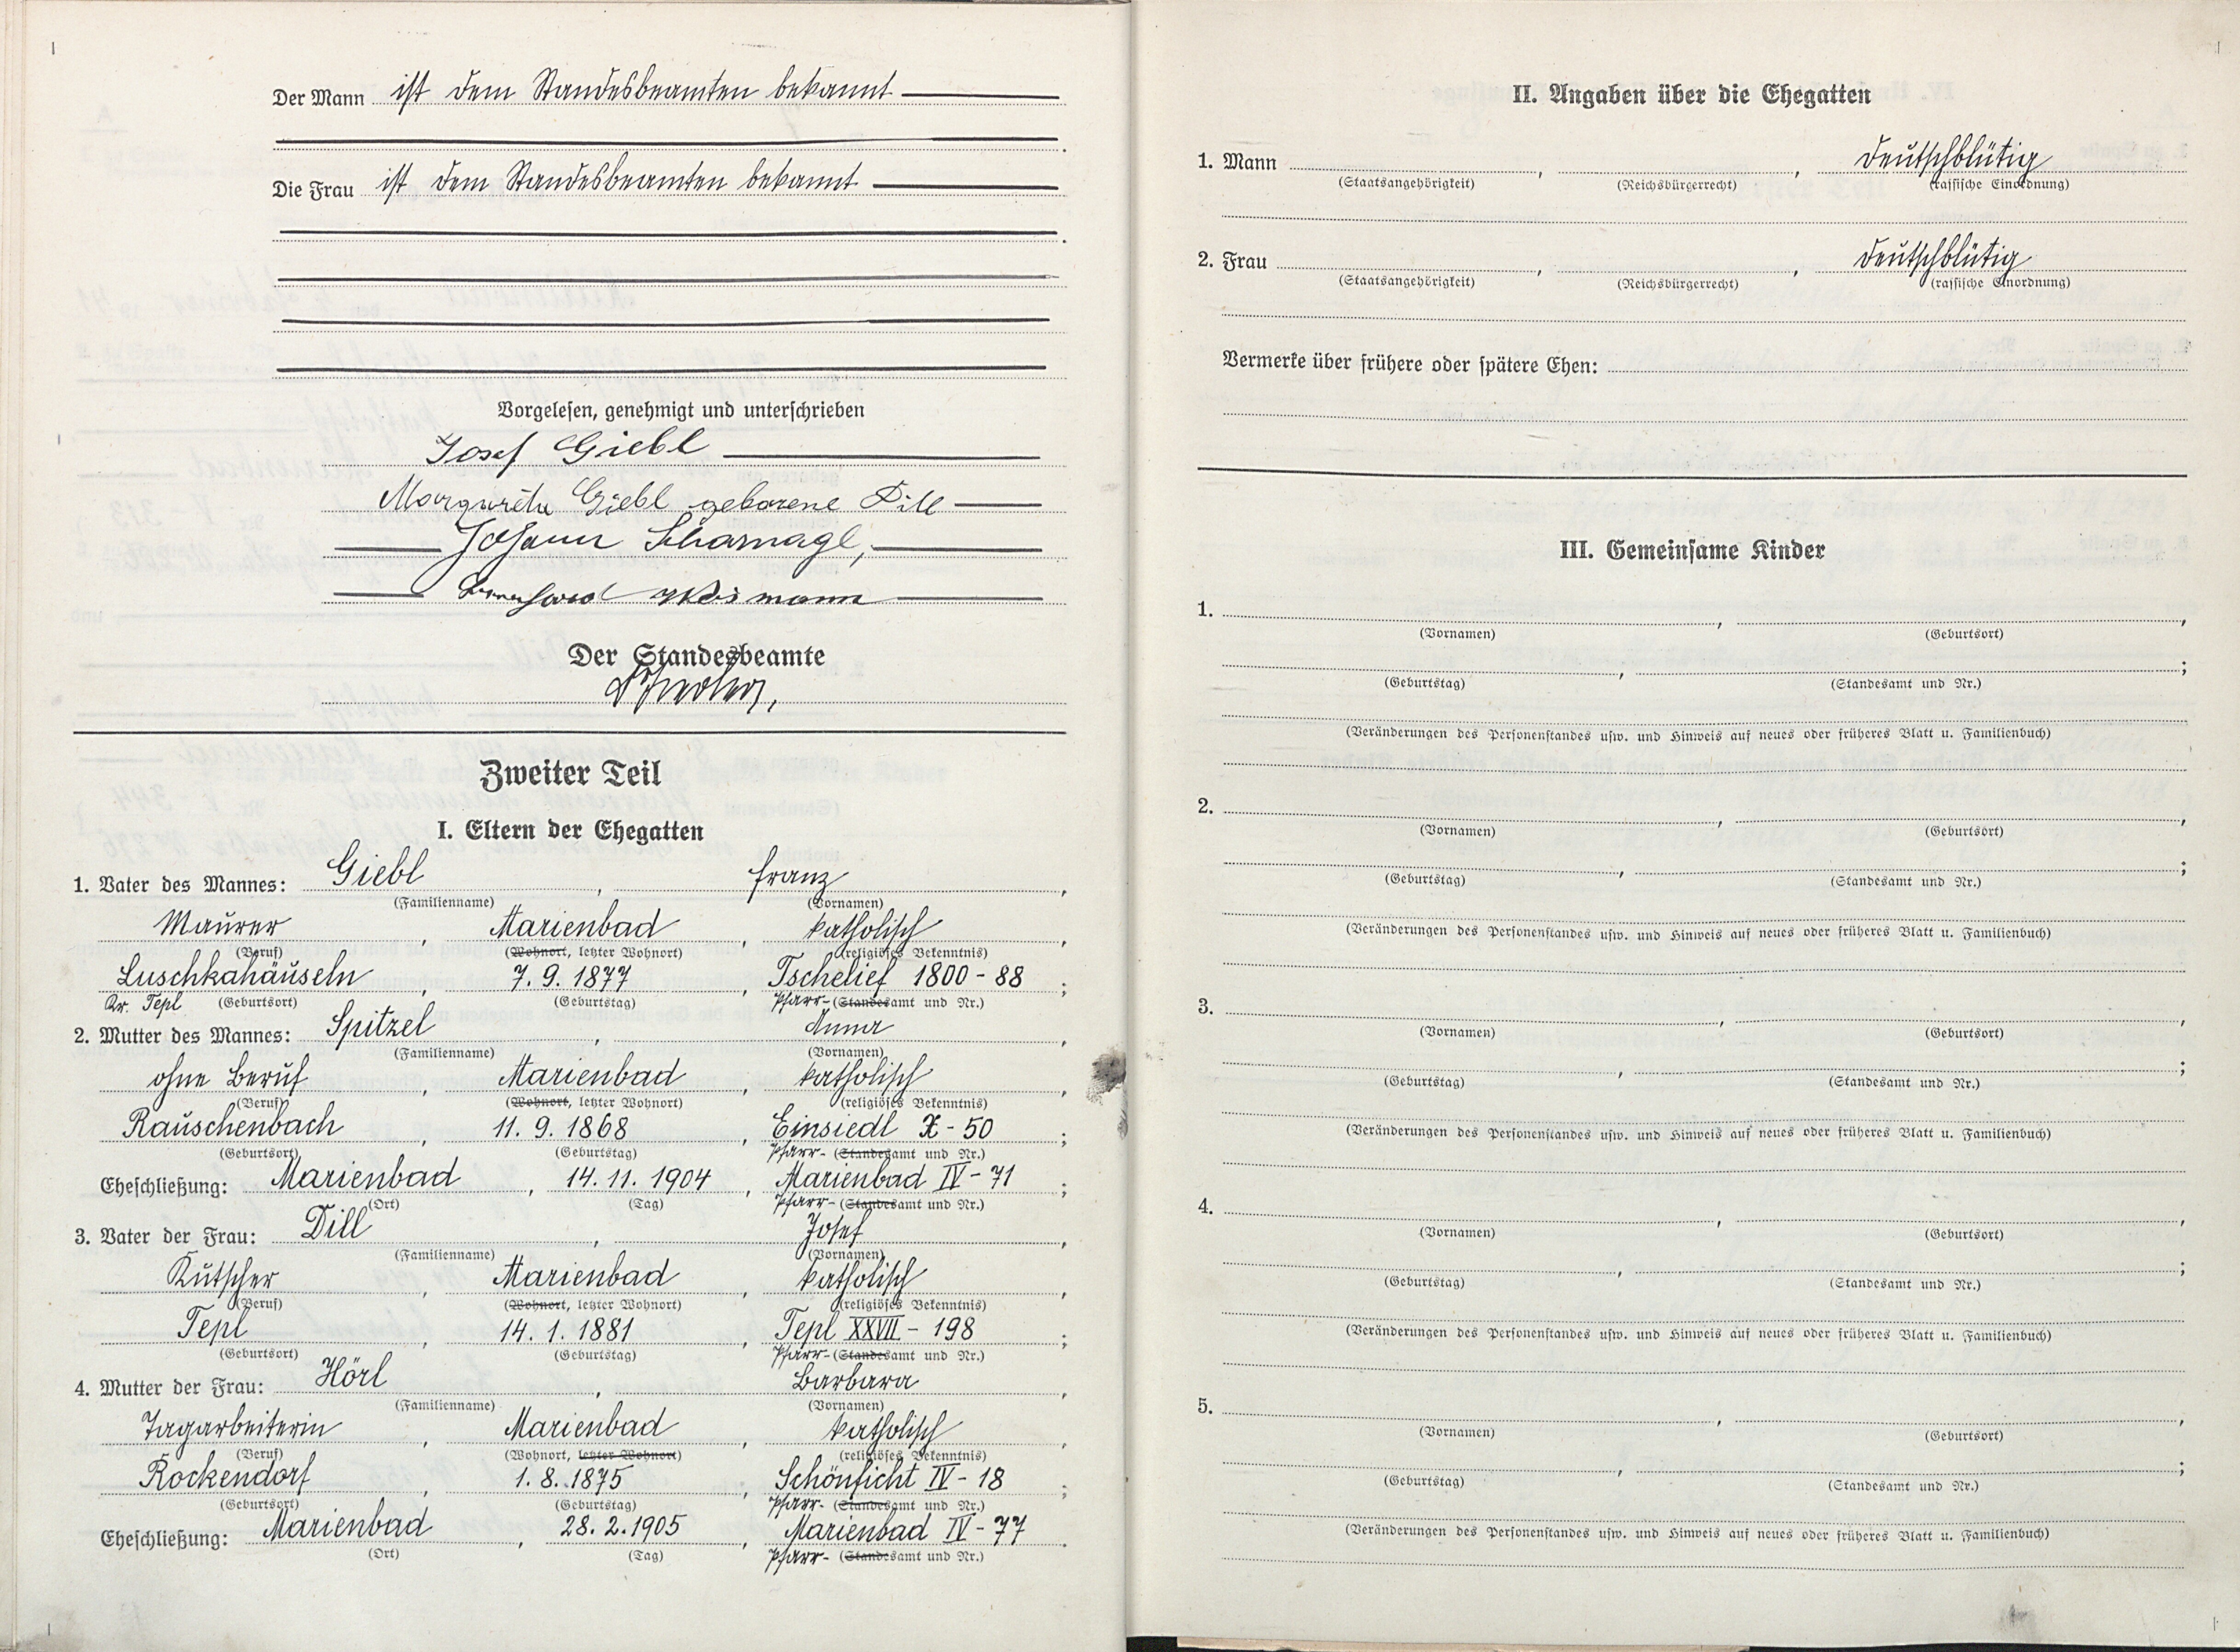 Der Mann ist dem Standesbeamten bekannt
.
Die Frau ist dem Standesbeamten bekannt
.
Vorgelesen, genehmigt und unterschrieben
Josef Giebl
Margareta Giebl geborene Dill
Johann Scharnagl,
Der Standesbeamte
Zweiter Teil
I. Eltern der Ehegatten
1. Vater des Mannes: Giebl, Franz,
(Familienname) (Vornamen)
Maurer, Marienbad, katholisch,
(Beruf) (Wohnort, letzter Wohnort) (religiöses Bekenntnis)
Luschkahäuseln, 7. 9. 1877, Tschelief 1800 - 88;
Kr. Tepl (Geburtsort) (Geburtstag) Pfarr- (Standesamt und Nr.)
2. Mutter des Mannes: Spitzel, Anna,
(Familienname) (Vornamen)
ohne Beruf, Marienbad, katholisch,
(Beruf) (Wohnort, letzter Wohnort) (religiöses Bekenntnis)
Rauschenbach, 11. 9. 1868, Einsiedl X - 50;
(Geburtsort) (Geburtstag) Pfarr- (Standesamt und Nr.)
Eheschließung: Marienbad, 14. 11. 1904, Marienbad IV - 71;
(Ort) (Tag) Pfarr- (Standesamt und Nr.)
3. Vater der Frau: Dill, Josef,
(Familienname) (Vornamen)
Kutscher, Marienbad, katholisch,
(Beruf) (Wohnort, letzter Wohnort) (religiöses Bekenntnis)
Tepl, 14. 1. 1881, Tepl XXVII - 198;
(Geburtsort) (Geburtstag) Pfarr- (Standesamt und Nr.)
4. Mutter der Frau: Hörl, Barbara,
(Familienname) (Vornamen)
Tagarbeiterin, Marienbad, katholisch,
(Beruf) (Wohnort, letzter Wohnort) (religiöses Bekenntnis)
Rockendorf, 1. 8. 1875, Schönficht IV - 18;
(Geburtsort) (Geburtstag) Pfarr- (Standesamt und Nr.)
Eheschließung: Marienbad, 28. 2. 1905, Marienbad IV - 77.
(Ort) (Tag) Pfarr- (Standesamt und Nr.)
II. Angaben über die Ehegatten
1. Mann , , deutschblütig
(Staatsangehörigkeit) (Reichsbürgerrecht) (rassische Einordnung)
2. Frau , , deutschblütig
(Staatsangehörigkeit) (Reichsbürgerrecht) (rassische Einordnung)
Vermerke über frühere oder spätere Ehen:
III. Gemeinsame Kinder
1. , ,
(Vornamen) (Geburtsort)
, ;
(Geburtstag) (Standesamt und Nr.)
(Veränderungen des Personenstandes usw. und Hinweis auf neues oder früheres Blatt u. Familienbuch)
2. , ,
(Vornamen) (Geburtsort)
, ;
(Geburtstag) (Standesamt und Nr.)
(Veränderungen des Personenstandes usw. und Hinweis auf neues oder früheres Blatt u. Familienbuch)
3. , ,
(Vornamen) (Geburtsort)
, ;
(Geburtstag) (Standesamt und Nr.)
(Veränderungen des Personenstandes usw. und Hinweis auf neues oder früheres Blatt u. Familienbuch)
4. , ,
(Vornamen) (Geburtsort)
, ;
(Geburtstag) (Standesamt und Nr.)
(Veränderungen des Personenstandes usw. und Hinweis auf neues oder früheres Blatt u. Familienbuch)
5. , ,
(Vornamen) (Geburtsort)
, ;
(Geburtstag) (Standesamt und Nr.)
(Veränderungen des Personenstandes usw. und Hinweis auf neues oder früheres Blatt u. Familienbuch)